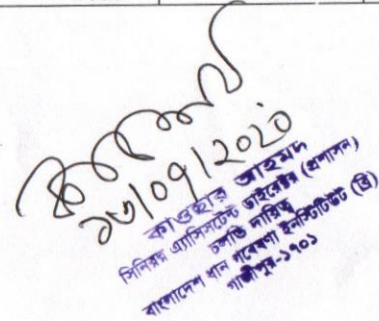 ১৩/০৭/২০২০
কাওছার আহমদ
সিনিয়র এ্যাসিসটেন্ট ডাইরেক্টর (প্রশাসন)
চলতি দায়িত্ব
বাংলাদেশ ধান গবেষণা ইনস্টিটিউট (ব্রি)
গাজীপুর-১৭০১